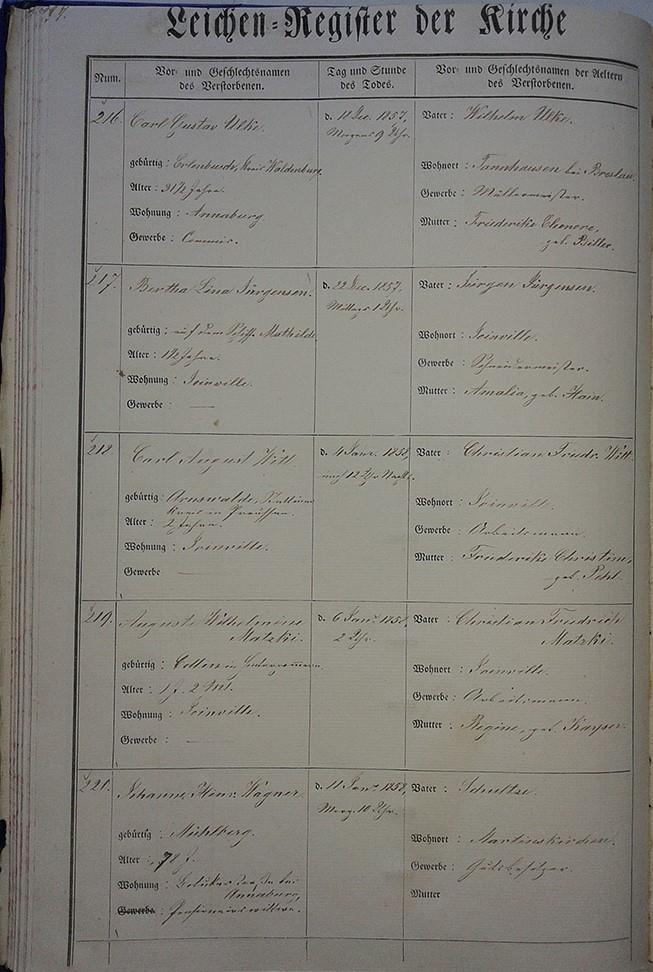 Leichen=Register der Kirche
Num.
Vor- und Geschlechtsnamen
des Verstorbenen.
Tag und Stunde
des Todes.
Vor- und Geschlechtsnamen der Aeltern
des Verstorbenen.
216.
Carl Gustav Ulke.
gebürtig: Erlenbusch, Kreis Waldenburg
Alter: 31½ Jahre.
Wohnung: Annaburg
Gewerbe: Commis.
Dec. 1857.
Morgens 9 Uhr.
Vater: Wilhelm Ulke.
Wohnort: Tannhausen bei Breslau.
Gewerbe: Müllermeister.
Mutter: Friederike Eleonore,
geb.
217.
Bertha Lina Jürgensen.
gebürtig: auf dem Schiffe Mathilde
Alter: 1½ Jahre.
Wohnung: Joinville.
Gewerbe: —
d. 22 Dec. 1857.
Mittags 1 Uhr.
Vater: Jürgen Jürgensen.
Wohnort: Joinville.
Gewerbe: Schneidermeister.
Mutter: Amalia, geb. Hain.
218.
Carl August Witt.
gebürtig: Arnswalde,
Kreis in Preussen.
Alter: 2 Jahre.
Wohnung: Joinville.
Gewerbe —
d. 4 Janr. 1858
12 Uhr Nachts.
Vater: Christian Friedr. Witt.
Wohnort: Joinville.
Gewerbe: Arbeitsmann.
Mutter: Friederike Christine,
geb.
219.
Auguste Wilhelmine
Matzki.
gebürtig: in Hinterpommern.
Alter: 1 J. 2 Mt.
Wohnung: Joinville.
Gewerbe: —
d. 6 Janr. 1858
2 Uhr.
Vater: Christian Friedrich
Matzki.
Wohnort: Joinville.
Gewerbe: Arbeitsmann.
Mutter: Regine, geb. Kayser.
Wagner.
gebürtig: Mühlberg.
Alter: 78 J.
Wohnung: Straße bei
Annaburg,
Gewerbe:
d. 11 Janr. 1858,
Morg. 10 Uhr.
Vater: Schultze.
Wohnort: Martinskirchen.
Gewerbe: Gutsbesitzer.
Mutter